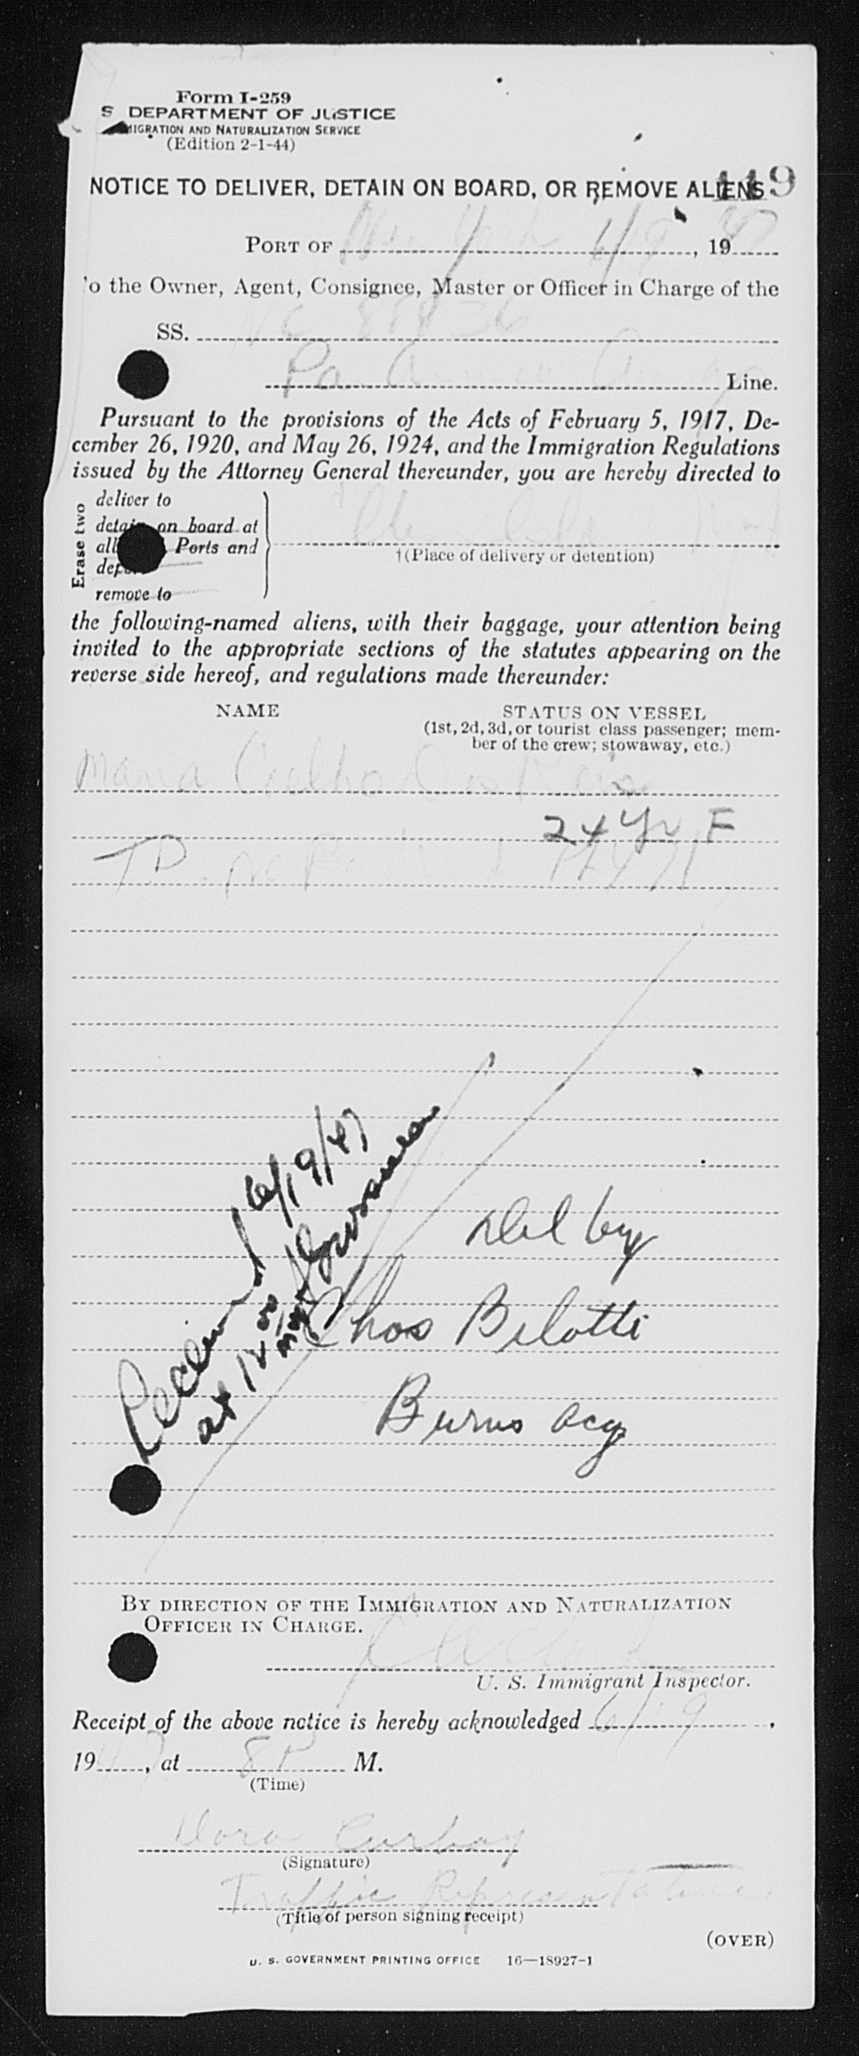 Form I-259
S DEPARTMENT OF JUSTICE
MIGRATION AND NATURALIZATION SERVICE
(Edition 2-1-44)
NOTICE TO DELIVER, DETAIN ON BOARD, OR REMOVE ALIENS
119
PORT OF New York 6/9, 1947
'o the Owner, Agent, Consignee, Master or Officer in Charge of the
SS. NC 88836
Pan American Line.
Pursuant to the provisions of the Acts of February 5, 1917, De-
cember 26, 1920, and May 26, 1924, and the Immigration Regulations
issued by the Attorney General thereunder, you are hereby directed to
Erase two
deliver to
detain on board at
all Ports and
deport
remove to
†(Place of delivery or detention)
the following-named aliens, with their baggage, your attention being
invited to the appropriate sections of the statutes appearing on the
reverse side hereof, and regulations made thereunder:
NAME STATUS ON VESSEL
(1st, 2d, 3d, or tourist class passenger; mem-
ber of the crew; stowaway, etc.)
Maria Coelho Dos Reis
24 Yr F
TD
Received 6/19/47
at 12 00
Del by
Chas Bilotti
Burns acy
BY DIRECTION OF THE IMMIGRATION AND NATURALIZATION
OFFICER IN CHARGE.
U. S. Immigrant Inspector.
Receipt of the above notice is hereby acknowledged 6/19,
1947, at 8 P M.
(Time)
Dora
(Signature)
Traffic Representative
(Title of person signing receipt)
(OVER)
U. S. GOVERNMENT PRINTING OFFICE 16—18927-1